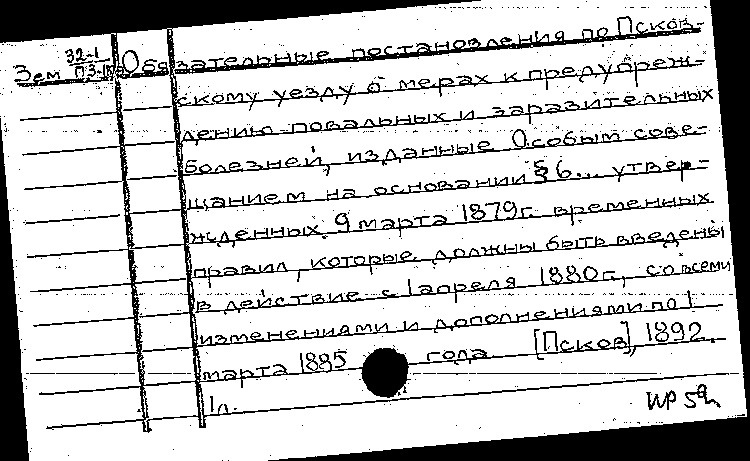 Зем 32-1 Обязательные постановления по Псков-
П.3-
скому уезду о мерах к предупреж-
дению повальных и заразительных
болезней, изданные Особым сове-
щанием на основании § 6... утвер-
жденных 9 марта 1879г. временных
правил, которые должны быть введены
в действие с 1 апреля 1880г., со всеми
изменениями и дополнениями по 1
марта 1885 года. [Псков], 1892.
1л.